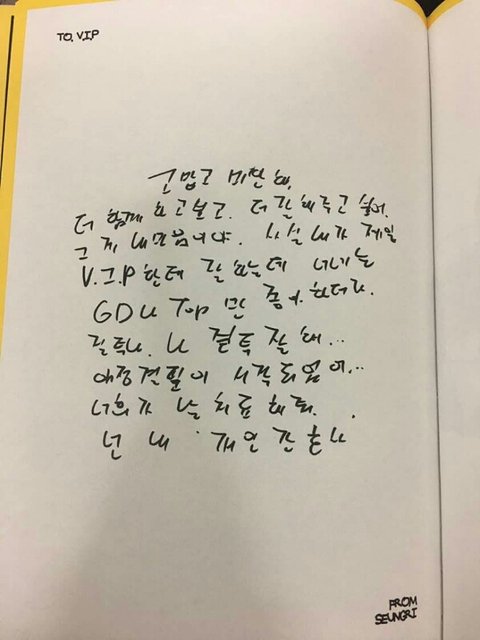 TO. V.I.P
고맙고 미안해.
더 함께 하고 보고. 더 잘해주고 싶어.
그게 내마음이야. 사실 내가 제일
V.I.P한테 잘하는데 너네는
GD나 TOP만 좋아하더라.
질투나. 나 질투 잘해...
애정결핍이 시작되었어...
너희가 날 치료해줘.
넌 내 개인간호사
FROM
SEUNGRI